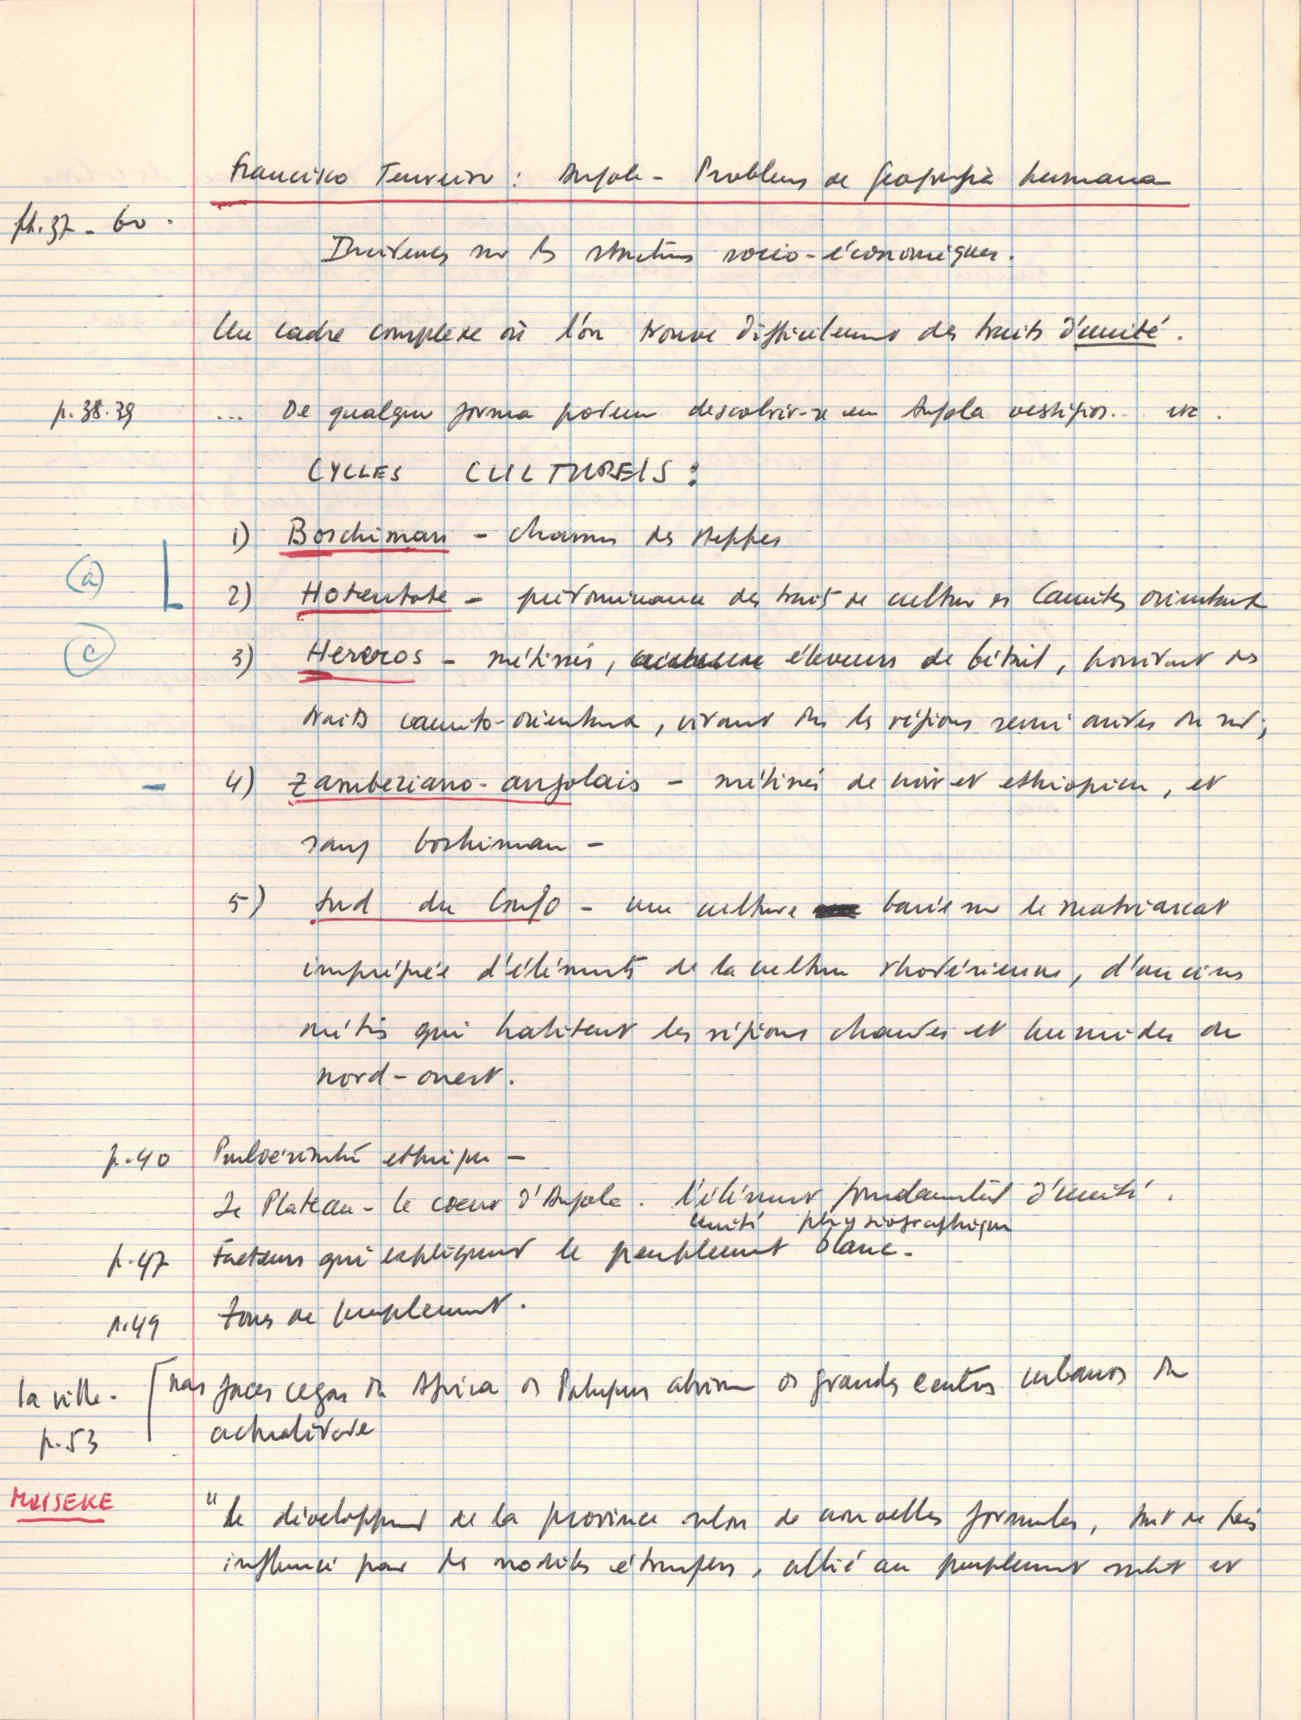 Francisco Tenreiro : Angola - Problemas de geografia humana
pp. 37 - 60 .
Incidences sur les structures socio-économiques.
Un cadre complexe où l'on trouve difficilement des traits d'unité.
p. 38.39 ... De qualquer forma podem descobrir-se em Angola vestigios... etc.
CYCLES CULTURELS :
1) Boschiman - chasseurs des steppes
(a) 2) Hotentote - prédominance des traits de culture des Camites orientaux
(c) 3) Hereros - métissés, éleveurs de bétail, possédant des
traits camito-orientaux, vivant dans les régions semi arides du sud ;
- 4) Zambeziano-angolais - métissés de noir et ethiopien, et
sang boshiman -
5) Sud du Congo - une culture basée sur le matriarcat
imprégnée d'éléments de la culture rhodésienne, d'anciens
métis qui habitent les régions chaudes et humides du
nord-ouest.
p. 40 Pulvérisation ethnique -
Le Plateau - le coeur d'Angola. l'élément fondamental d'unité.
unité physiographique
p. 47 Facteurs qui expliquent le peuplement blanc -
p. 49 Zones de peuplement.
la ville - nas faces cegas da Africa os Portugueses abriram os grandes centros urbanos da
p. 53 actualidade
"Le développement de la province selon de nouvelles formules, tant de fois
influencé par des modèles étrangers, allié au peuplement et